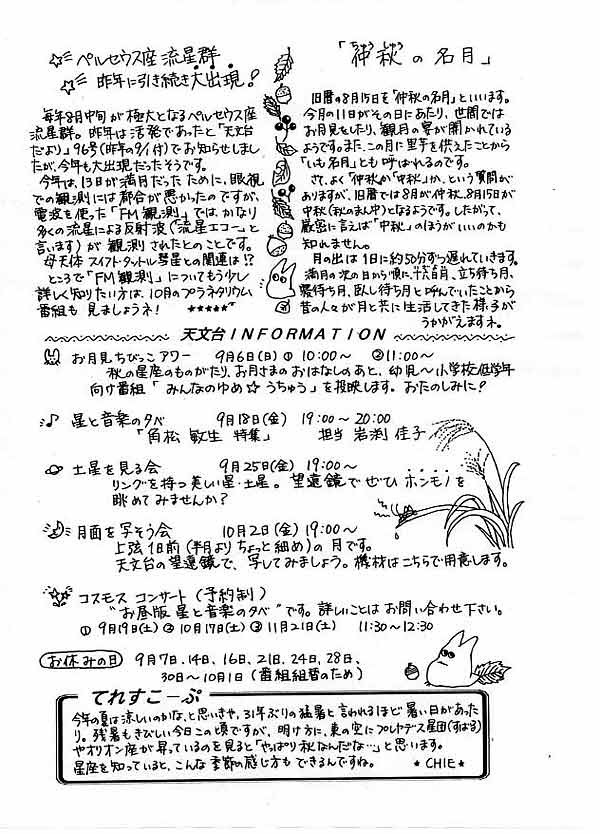 ペルセウス座流星群
昨年に引き続き大出現!
毎年8月中旬が極大となるペルセウス座
流星群。昨年は活発であったと「天文台
だより」96号(昨年の9/1付)でお知らせしまし
たが、今年も大出現だったそうです。
今年は、13日が満月だったために、眼視
での観測には都合が悪かったのですが、
電波を使った「FM観測」では、かなり
多くの流星による反射波(流星エコーと
言います)が観測されたとのことです。
母天体スイフト・タットル彗星との関連は!?
ところで「FM観測」についてもう少し
詳しく知りたい方は、10月のプラネタリウム
番組も見ましょうネ! ★★★★★
「仲秋の名月」
ちゅうしゅう
旧暦の8月15日を「仲秋の名月」といいます。
今月の11日がその日にあたり、世間では
お月見をしたり、観月の宴が開かれている
ようです。また、この月に里芋を供えたことから
「いも名月」とも呼ばれるのです。
さて、よく「仲秋」か「中秋」か、という質問が
ありますが、旧暦では8月が仲秋、8月15日が
中秋(秋のまん中)となるようです。したがって、
厳密に言えば「中秋」のほうがいいのかも
知れません。
月の出は1日に約50分ずつ遅れていきます。
満月の次の日から順に、十六夜月、立ち待ち月、
寝待ち月、臥し待ち月と呼んでいたことから
昔の人々が月と共に生活してきた様子が
うかがえますネ。
天文台INFORMATION
お月見ちびっこアワー 9月6日(日) ① 10:00~ ②11:00~
秋の星座のものがたり、お月さまのおはなしのあと、幼児~小学校低学年
向け番組「みんなのゆめ☆うちゅう」を投映します。おたのしみに?
星と音楽の夕べ 9月18日(金) 19:00~20:00
「角松敏生 特集」 担当 岩渕 佳子
土星を見る会 9月25日(金) 19:00~
リングを持つ美しい星・土星。望遠鏡でぜひホンモノを
眺めてみませんか?
月面を写そう会 10月2日(金) 19:00~
上弦1日前(半月よりちょっと細め)の月です。
天文台の望遠鏡で、写してみましょう。機材はこちらで用意します。
コスモス コンサート(予約制)
"お昼版 星と音楽の夕べ"です。詳しいことはお問い合わせ下さい。
① 9月19日(土) ② 10月17日(土) ③ 11月21日(土) 11:30~12:30
お休みの日 9月7日、14日、16日、21日、24日、28日、
30日~10月1日(番組組替のため)
てれすこーぷ
今年の夏は涼しいのかな、と思いきや、31年ぶりの猛暑と言われるほど暑い日があった
り。残暑もきびしい今日この頃ですが、明け方に、東の空にプレヤデス星団(すばる)
やオリオン座が昇っているのを見ると「やっぱり秋なんだな…」と思います。
星座を知っていると、こんな季節の感じ方もできるんですね。 ★CHIE★